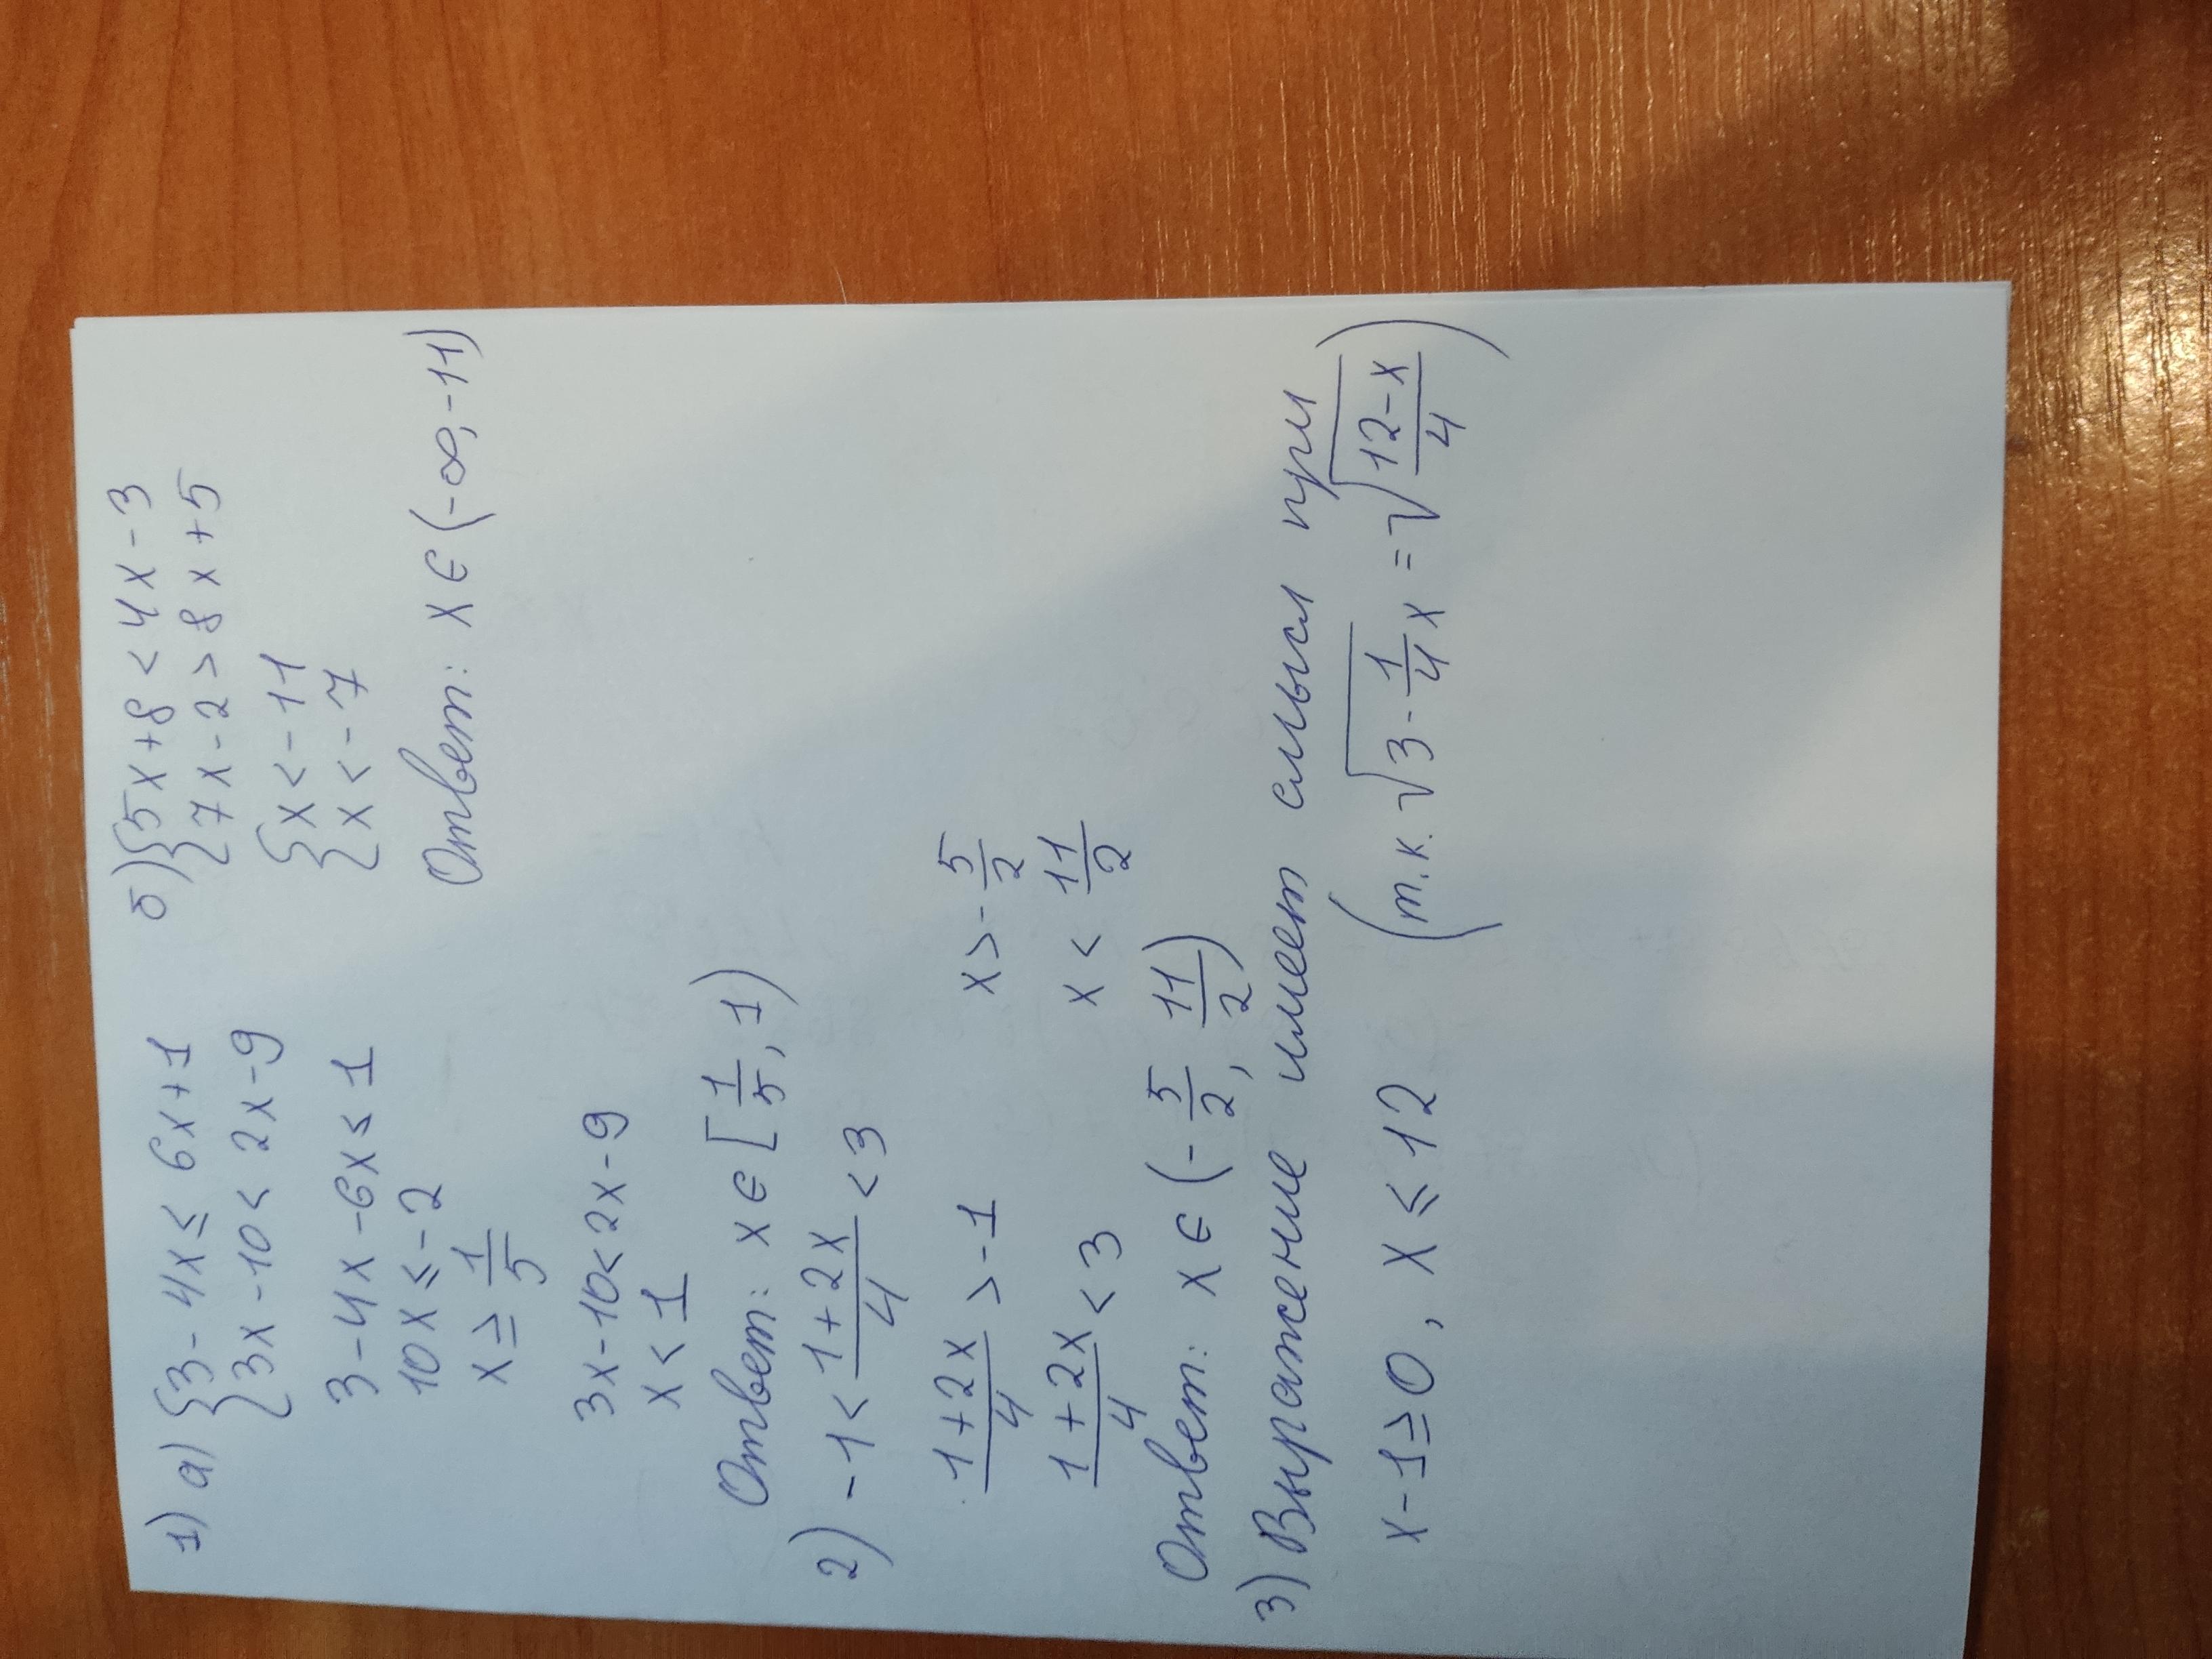 1) а) { 3 - 4x ≤ 6x + 1
{ 3x - 10 < 2x - 9
3 - 4x - 6x ≤ 1
10x ≤ -2
x ≥ 1/5
3x - 10 < 2x - 9
x < 1
Ответ: x ∈ [1/5, 1)
б) { 5x + 8 < 4x - 3
{ 7x - 2 > 8x + 5
{ x < -11
{ x < -7
Ответ: x ∈ (-∞, -11)
2) -1 < (1 + 2x)/4 < 3
(1 + 2x)/4 > -1 x > -5/2
(1 + 2x)/4 < 3 x < 11/2
Ответ: x ∈ (-5/2, 11/2)
3) Выражение имеет смысл при
x - 1 ≥ 0, x ≤ 12 (т.к. √(3 - 1/4 x) = √((12 - x)/4))